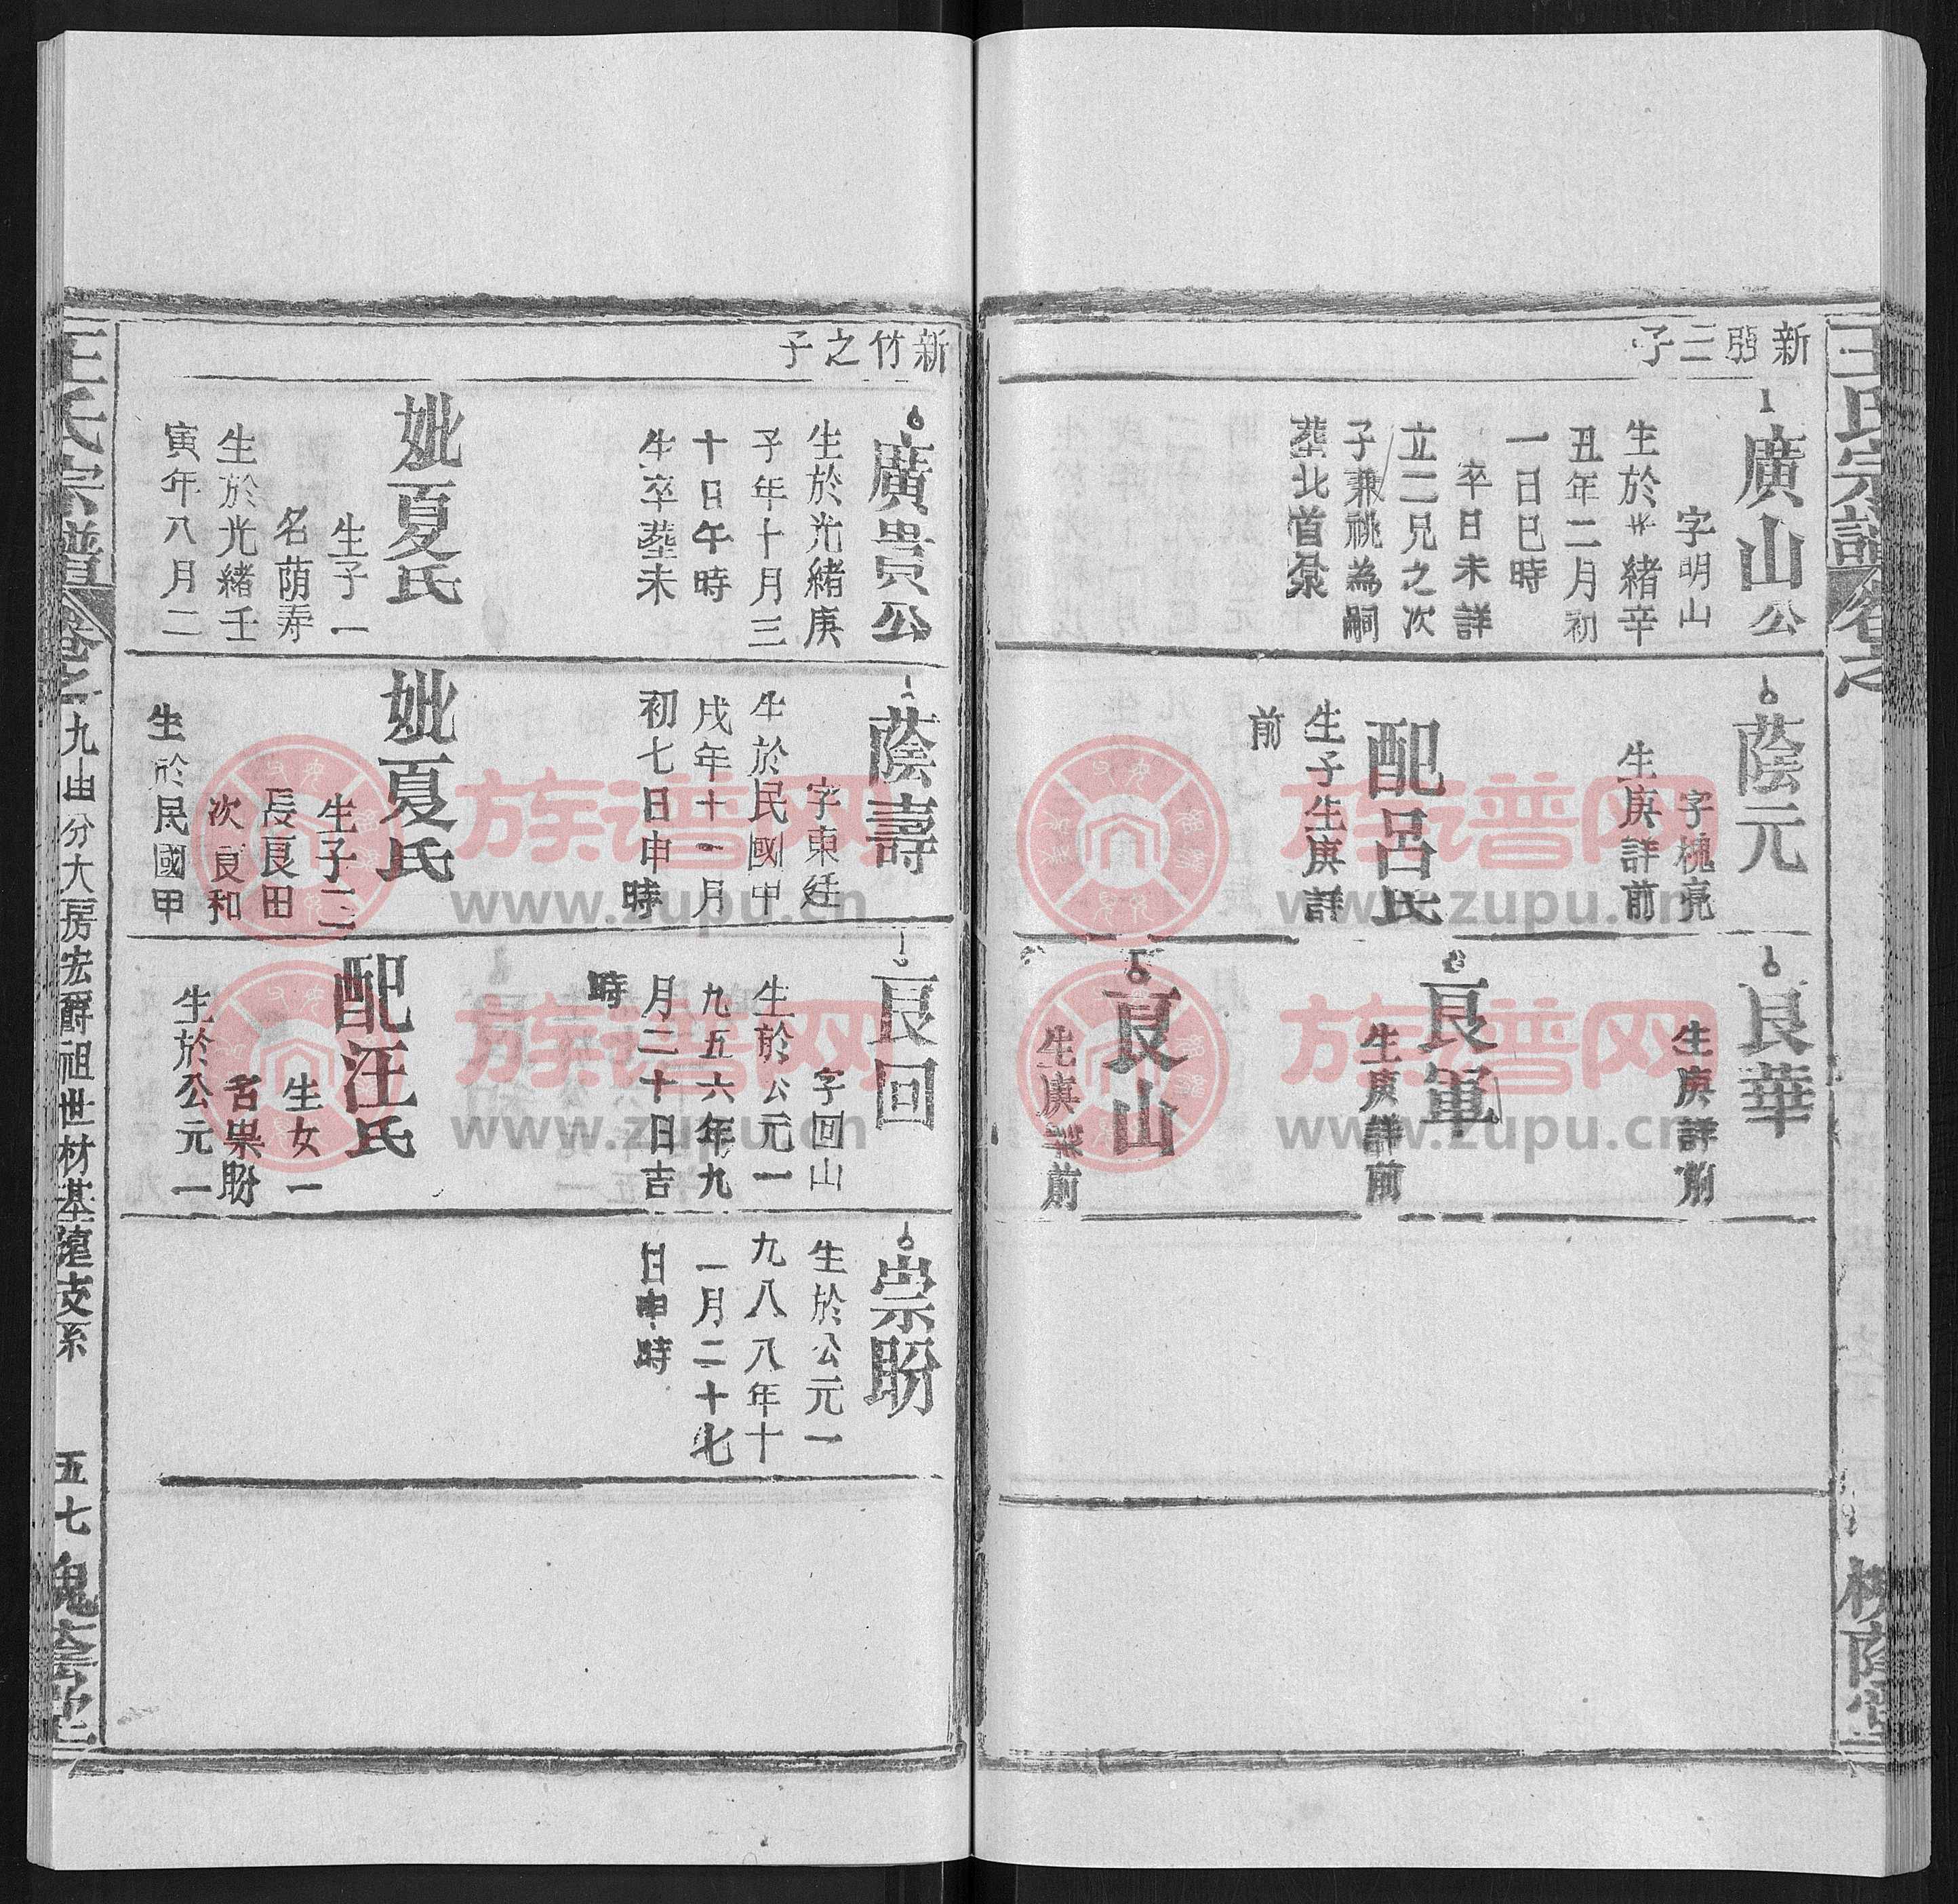 王氏宗譜
槐蔭堂
新
三子
廣山公
字明山
生於光緒辛
丑年二月初
一日巳時
卒日未詳
立二兄之次
子兼祧為嗣
塟北首泉
蔭元
字槐亮
生庚詳前
配呂氏
生子生庚詳
前
良華
生庚詳前
良軍
生庚詳前
良山
生庚詳前
新竹之子
廣貴公
生於光緒庚
子年十月三
十日午時
生卒塟未
妣夏氏
生子一
名蔭寿
生於光緒壬
寅年八月二
蔭壽
字東廷
生於民國甲
戌年十一月
初七日申時
妣夏氏
生子二
長良田
次良和
生於民國甲
良回
字回山
生於公元一
九五六年九
月二十日吉
時
配汪氏
生女一
名崇盼
生於公元一
崇盼
生於公元一
九八八年十
一月二十七
日申時
王氏宗譜
卷之
九由分大房宏爵祖世材基
支系
五七
槐蔭堂
族谱网
www.zupu.cn
族谱网
www.zupu.cn
族谱网
www.zupu.cn
族谱网
www.zupu.cn